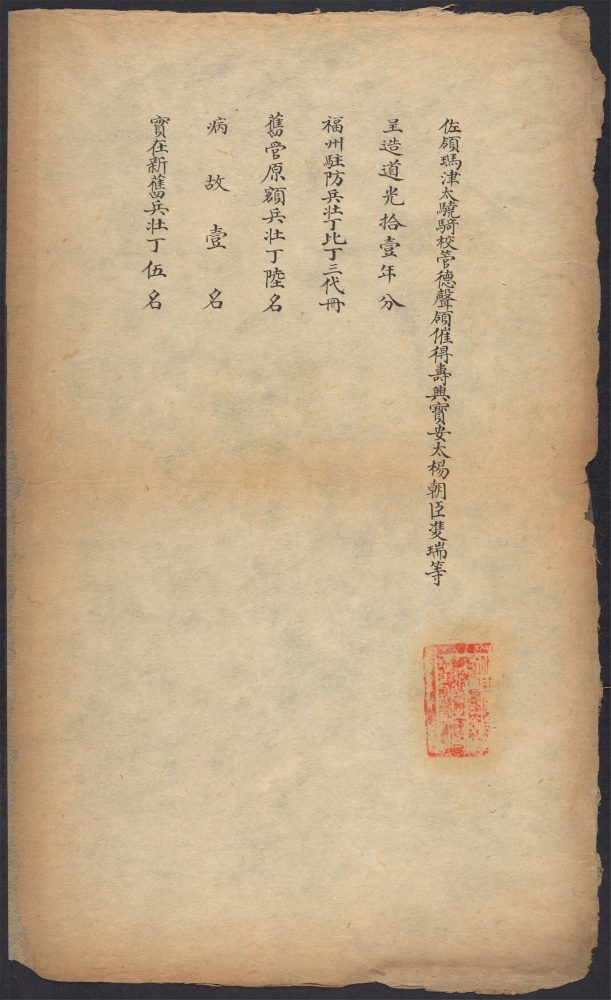 佐領瑪津太驍騎校管德聲領催得壽興寶安太楊朝臣雙瑞等
呈造道光拾壹年分
福州駐防兵壯丁比丁三代冊
舊管原額兵壯丁陸名
病故壹名
實在新舊兵壯丁伍名